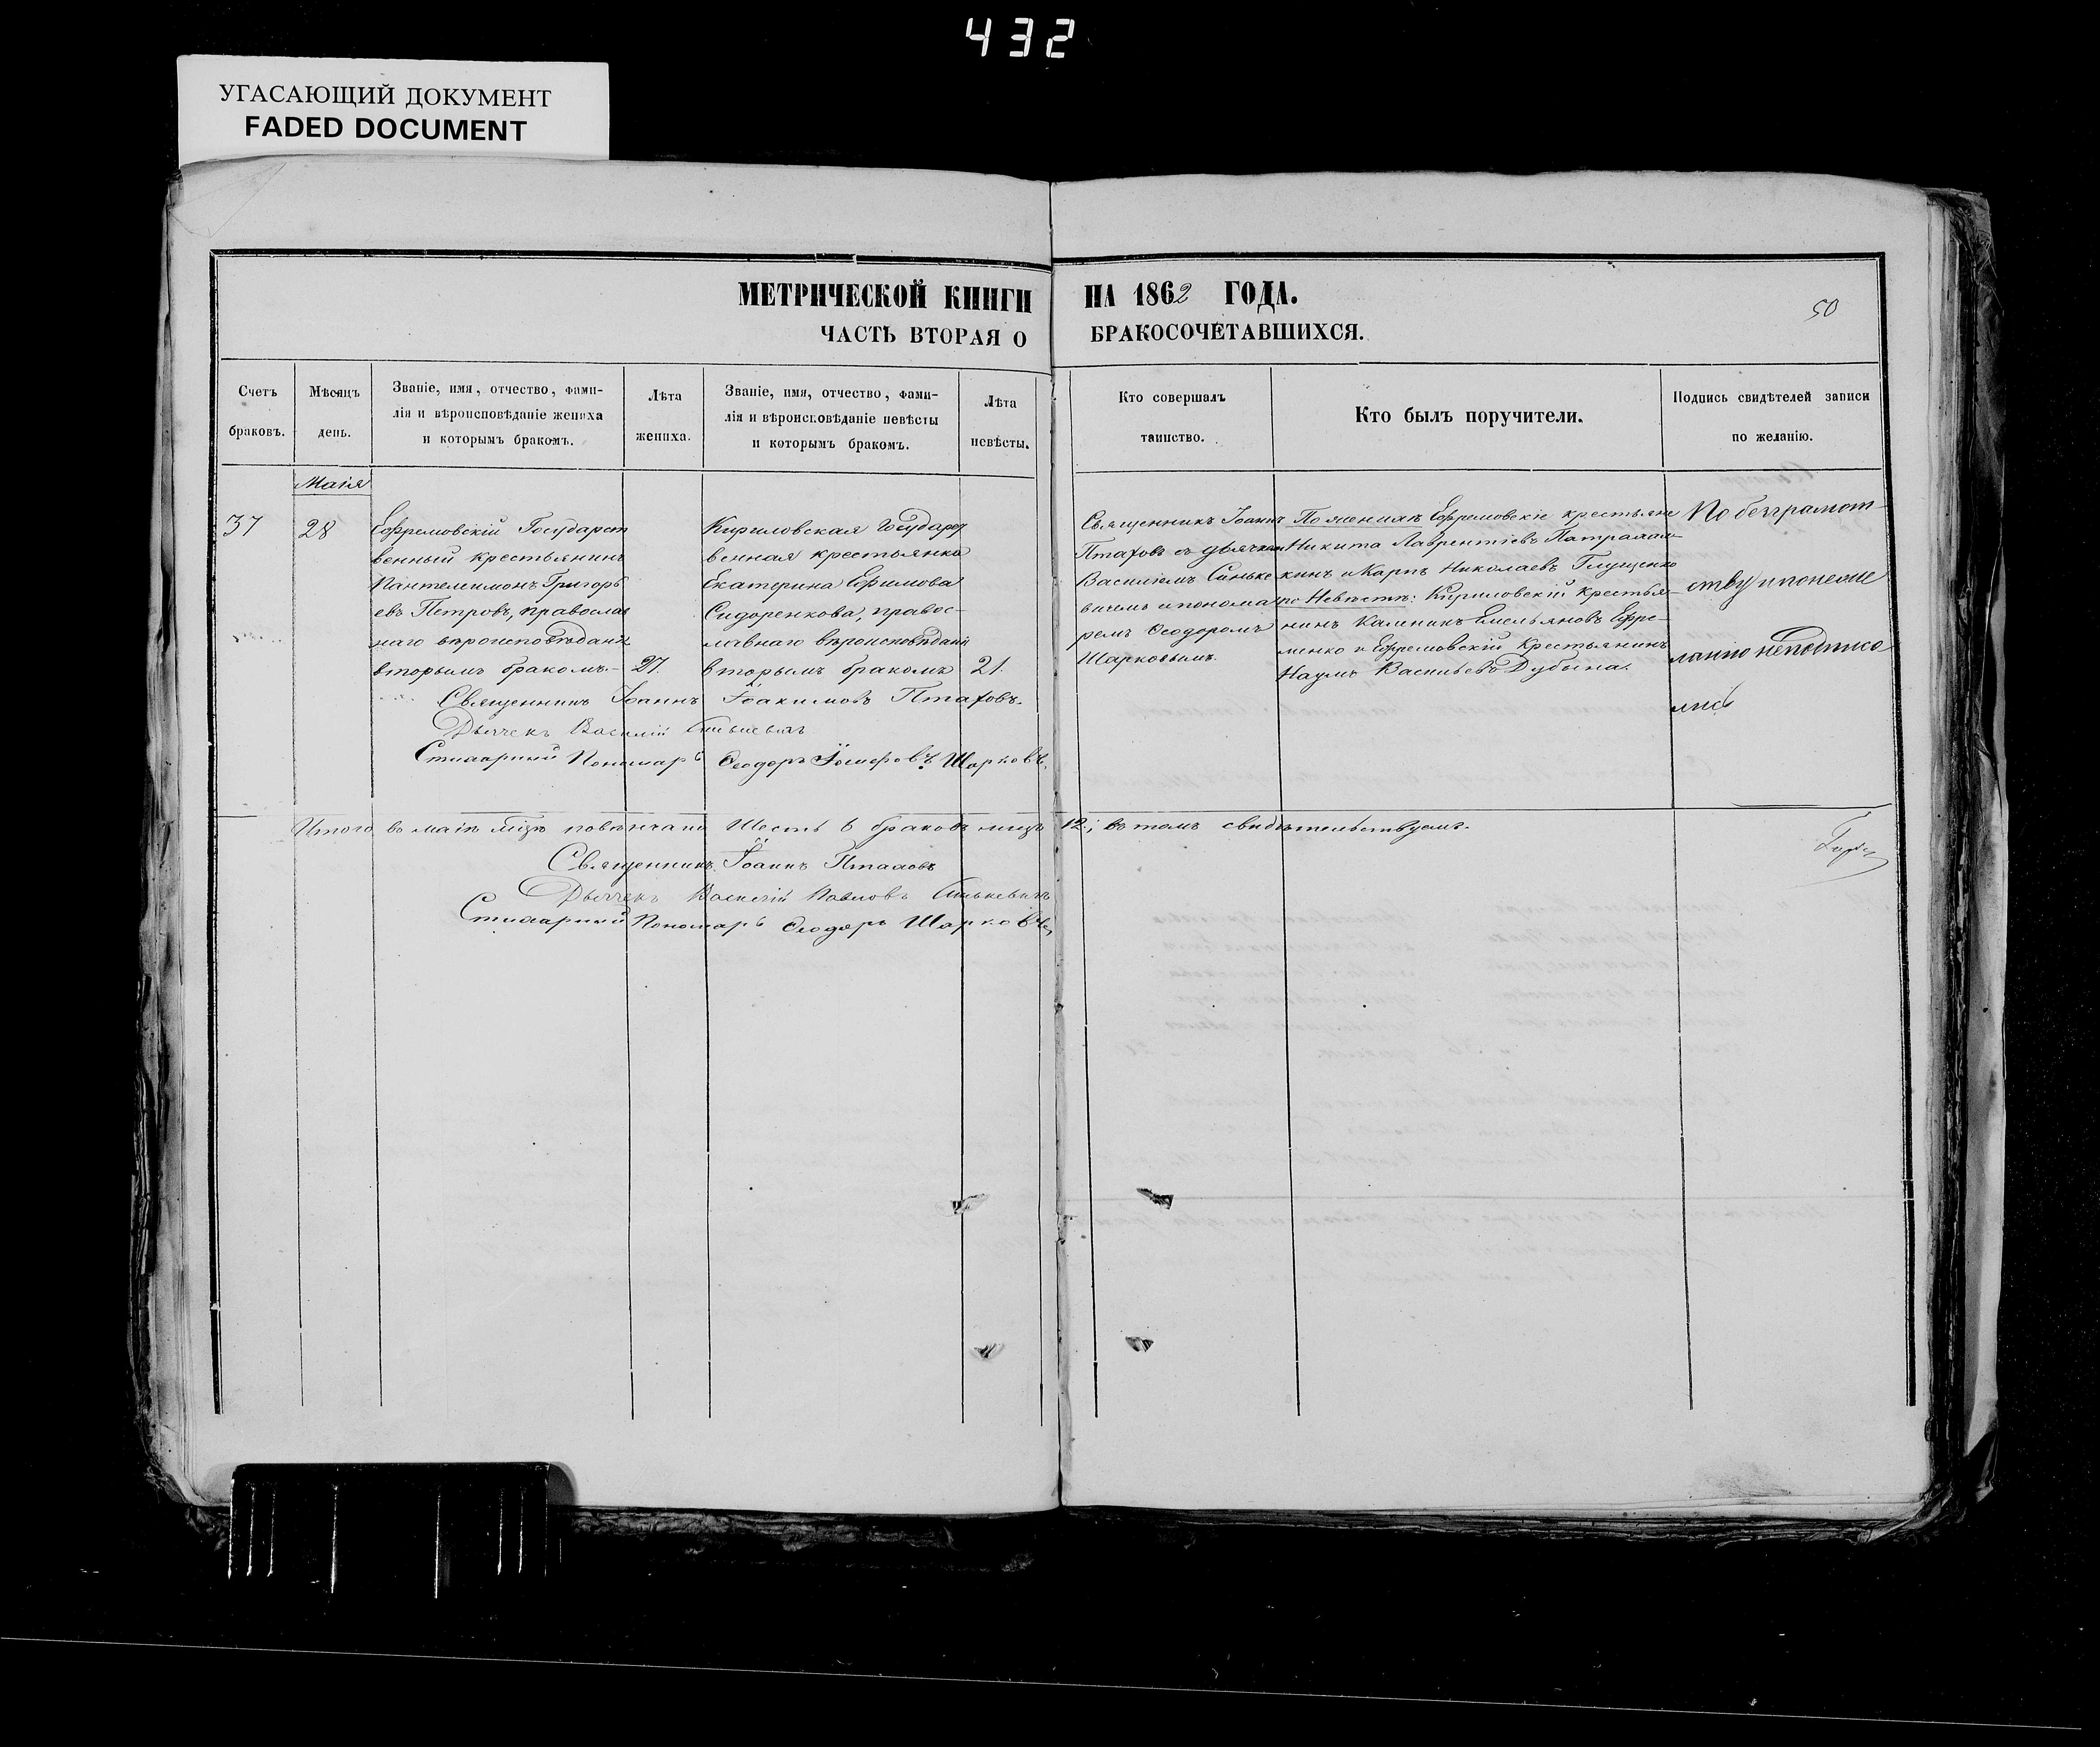 432
УГАСАЮЩИЙ ДОКУМЕНТ
FADED DOCUMENT
МЕТРИЧЕСКОЙ КНИГИ НА 1862 ГОДА.
50
ЧАСТЬ ВТОРАЯ О БРАКОСОЧЕТАВШИХСЯ.
Счетъ
браковъ.
Мѣсяцъ
день.
Званіе, имя, отчество, фами-
лія и вѣроисповѣданіе жениха
и которымъ бракомъ.
Лѣта
жениха.
Званіе, имя, отчество, фами-
лія и вѣроисповѣданіе невѣсты
и которымъ бракомъ.
Лѣта
невѣсты.
Кто совершалъ
таинство.
Кто былъ поручители.
Подпись свидѣтелей записи
по желанію.
37
Маія
28
Ефремовскій Государст
венный крестьянинъ
Пантелеимонъ Григорь
евъ Петровъ, православ
наго вѣроисповѣданія
вторымъ бракомъ.-
27.
Кириловская Государст
венная крестьянка
Екатерина Ефимова
Сидоренкова, правос-
лавнаго вѣроисповѣданія
вторымъ бракомъ
21.
Священникъ Іоаннъ
Птаховъ съ дьячкомъ
Василіемъ Синьке
вичемъ и понома
ремъ Ѳеодоромъ
Шарковымъ.
По женихѣ Ефремовскіе крестьяне
Никита Лаврентіевъ
кинъ и Карпъ Николаевъ Глущенко
по Невѣстѣ: Кириловскій крестья-
нинъ Каленикъ Емельяновъ Ефре-
менко и Ефремовскій крестьянинъ
Наумъ Васильевъ Дубина.
По безграмот-
ству и понеже
ланію неподписа
лись
Священникъ Іоаннъ Іоакимовъ Птаховъ.
Дьячекъ Василій Синькевичъ
Стихарный Пономарь Ѳеодоръ Іосифовъ Шарковъ.
Итого въ маіѣ мцѣ повѣнчано Шесть 6 браковъ лицъ 12; въ томъ свидѣтельствуемъ.
Священникъ Іоаннъ Птаховъ
Дьячекъ Василій Павловъ Синькевичъ
Стихарный Пономарь Ѳеодоръ Шарковъ